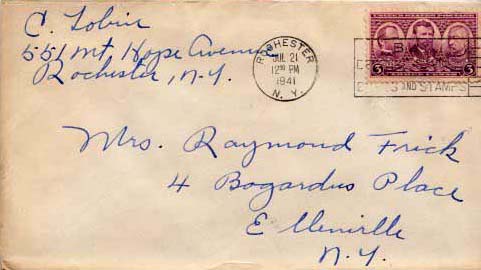 C. Lobin
551 Mt. Hope Avenue
Rochester, N.Y.
ROCHESTER
JUL 21
12 PM
1941
N. Y.
AND STAMPS
3 3
Mrs. Raymond Frick
4 Bogardus Place
Ellenville
N.Y.